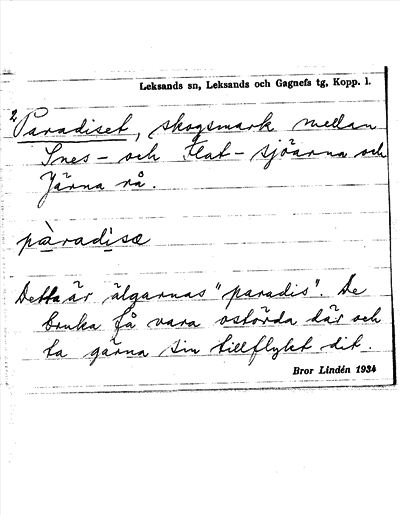 Leksands sn, Leksands och Gagnefs tg, Kopp. l.
2. Paradiset, skogsmark mellan
Snes- och Flat-sjöarna och
Järna rå.
pàradisæ
Detta är älgarnas "paradis". De
bruka få vara ostörda där och
ta gärna sin tillflykt dit.
Bror Lindén 1934